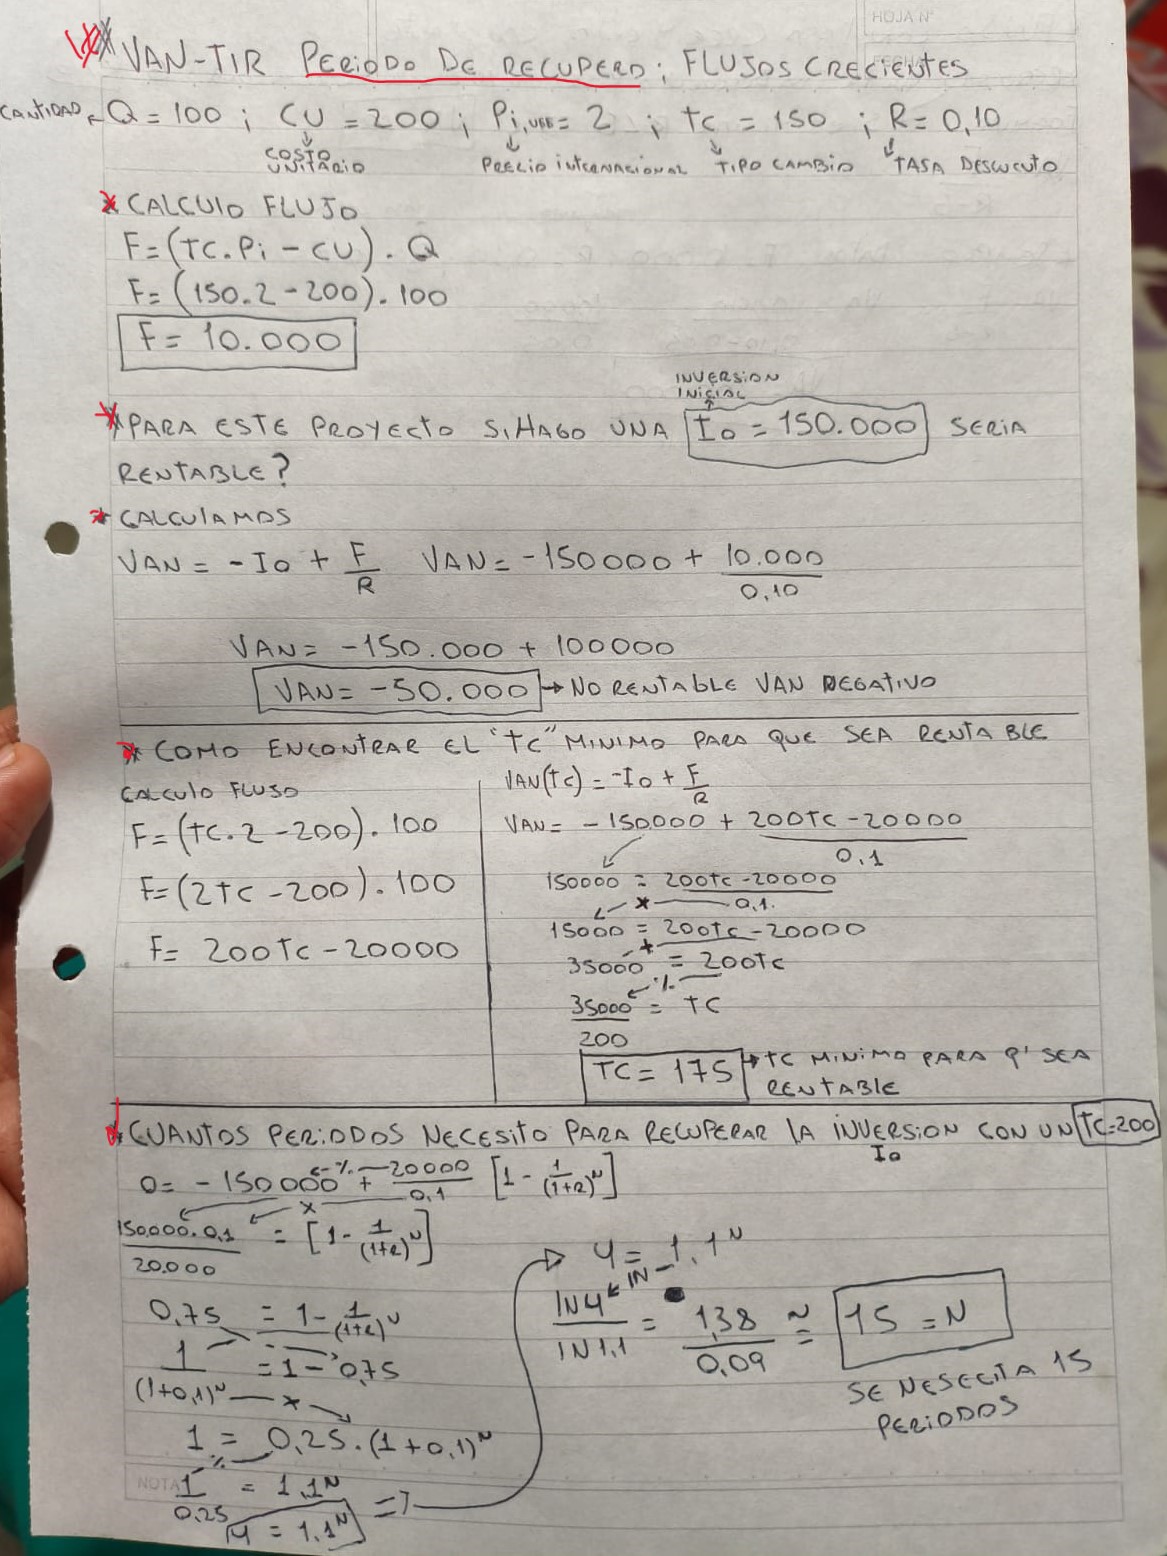 HOJA N°
VAN-TIR PERIODO DE RECUPERO; FLUJOS CRECIENTES
CANTIDAD ← Q = 100 ; CU = 200 ; Pi,U$$ = 2 ; tc = 150 ; R = 0,10
COSTO UNITARIO PRECIO INTERNACIONAL TIPO CAMBIO TASA DESCUENTO
* CALCULO FLUJO
F = (TC.Pi - CU) . Q
F = (150.2 - 200) . 100
F = 10.000
INVERSION
INICIAL
* PARA ESTE PROYECTO SI HAGO UNA Io = 150.000 SERIA
RENTABLE?
* CALCULAMOS
VAN = -Io + F/R VAN = -150000 + 10.000/0,10
VAN = -150.000 + 100000
VAN = -50.000 → NO RENTABLE VAN NEGATIVO
* COMO ENCONTRAR EL "TC" MINIMO PARA QUE SEA RENTABLE
CALCULO FLUJO
F = (TC.2 - 200) . 100
F = (2TC - 200) . 100
F = 200TC - 20000
VAN(TC) = -Io + F/R
VAN = -150.000 + 200TC - 20000/0,1
150000 = 200TC - 20000/0,1.
15000 = 200TC - 20000
35000 = 200TC
35000/200 = TC
TC = 175 → TC MINIMO PARA Q' SEA
RENTABLE
* CUANTOS PERIODOS NECESITO PARA RECUPERAR LA INVERSION CON UN TC=200
Io
0 = -150000 + 20000/0,1 [1 - 1/(1+R)^N]
150.000.0,1/20.000 = [1 - 1/(1+R)^N]
0,75 = 1 - 1/(1+R)^N
1/(1+0,1)^N = 1 - 0,75
1 = 0,25 . (1+0,1)^N
NOTA
1/0,25 = 1,1^N
4 = 1,1^N =>
4 = 1,1^N
IN
IN4/IN1,1 = 1,38/0,09 ≈ 15 = N
SE NESECITA 15
PERIODOS